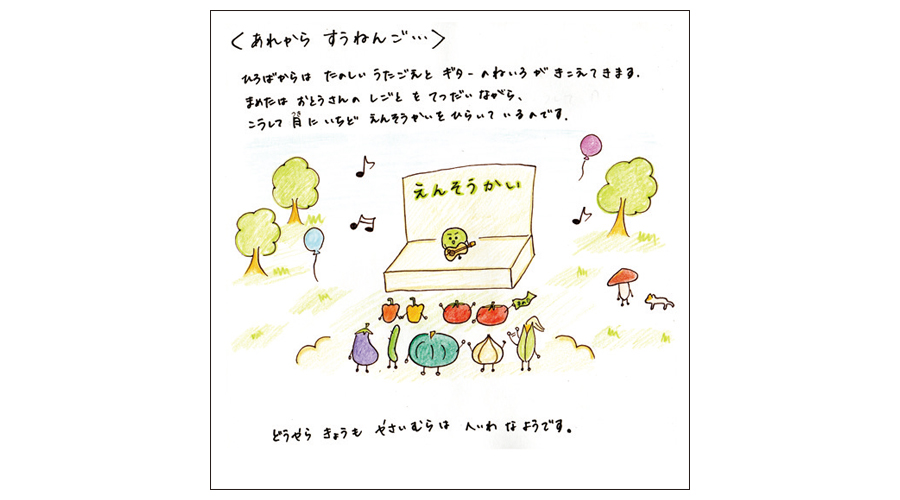 〈あれから すうねんご…〉
ひろばからは たのしい うたごえと ギターのねいろが きこえてきます.
まめたは おとうさんの しごとを てつだいながら、
こうして 月に いちど えんそうかいを ひらいて いるのです.
つき
えんそうかい
どうやら きょうも やさいむらは へいわ なようです。